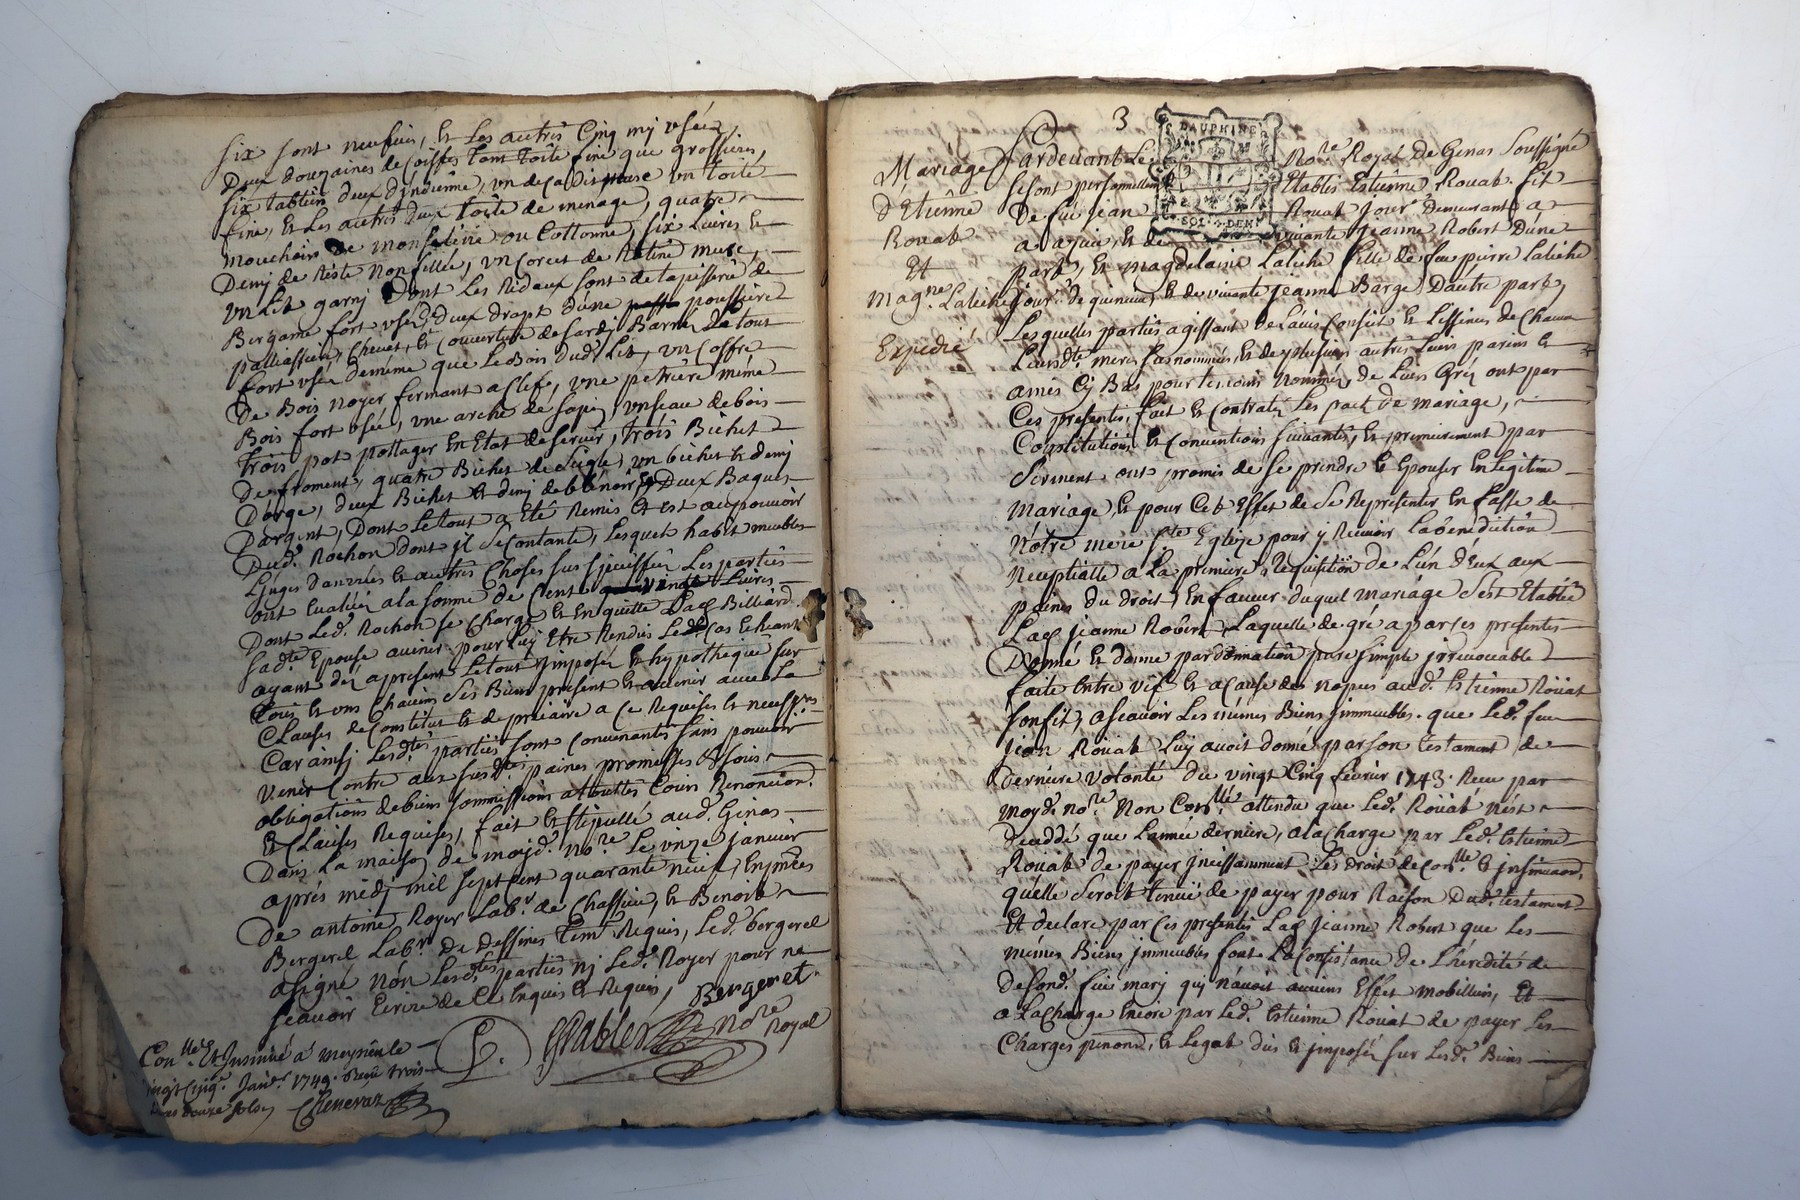 six sont neufves, et les autres Cinq mi usées,
Deux douzaines de coiffes tant toile fine que grossieres,
six tabliers deux d'indienne, un de cadis un toile
fine, et les autres deux toile de menage, quatre
mouchoirs de ou Cottonne, six Livres et
Demj de Riste non fillée, un Corcet de Ratine
Un Lit garnj Dont les Ridaux sont de tapisserie de
Bergame fort usée, deux drapt d'une poussiere
palliassiere, Chevet, et Couverture de fort
fort usée de meme que le Bois dud. Lit, un Coffre
De Bois noyer fermant a Clef, une petriere méme
Bois fort usé, une arche de sapin, un seau de bois
trois pot pottager En Etat de servir, trois Bichet
De froment, quatre Bichet de Seigle, un bichet et demj
D'orge, deux Bichet et demj de bled noir et Deux Bagues
D'argent, Dont le tout a Eté Remis et est au pouvoir
Dud. Rochon dont jl se contante, lesquels habits meubles
Linges danrées et autres Choses sus specifiées Les parties
ont Evaluées a la somme de Cent Livres
Dont Led. Rochon se Charge et En quitte Lad. Billiard
sad.te Epouse avenir pour luy Etre Rendus Led. Cas Echeant
ayant dez apresent le tout jmposé et hypothequé sur
tous et uns Chacuns ses Biens present et avenir avec La
Clauses de Constitut et de précaire a Ce Requises et necess.res
Car ainsj Lesd.tes parties sont Convenantes sans pouvoir
venir Contre aux susd.tes paines promesses &
obligations de biens sommissions a touttes Cours Renonciaon.
Et Clauses Requises, fait et stipullé aud. Genas
Dans La maison de moyd. no.re Le onze janvier
aprés midj mil sept Cent quarante neuf, En pnces
De antoine Royer Lab.r de Chassieu, et Benoit
Bergeret Lab.r de Dessines tem.t Requis, Led. bergeret
a signé non Lesdtes parties nj Led. Royer pour ne
sçavoir Ecrire de Ce Enquis et Requis, Bergeret
no.re Royal
Con.llé Et Jnsinué a meyzieu le
vingt Cinq.e Janv.r 1749. Reçu trois
Livres douze sols Chenevaz
3
DAUPHINÉ
SOL DEN
Mariage
d'Etienne
Rouat
Et
Magne. Laleche
Expedié
Pardevant Le No.re Royal De Genas Soussigné
se sont personnellem.t Etablis Estienne Rouat fit
De feu jean Rouat jour.r Demeurant a
a azieu, et de vivante Jeanne Robert D'une
part, et magdelaine Laleche fille de feu pierre Laleche
jour.r de et de vivante jeanne Barge, D'autre part,
Lesquelles parties agissant de l'avis Conseil et Licsences de Chacun
Leursd.tes meres susnommées, et de plusieurs autres Leurs parens et
amis Cy Bas pour temoins nommés, de Leurs Gréz ont par
Ces presentes, fait et Contratés Les pact de mariage,
Constitutions et Conventions suivantes, Et premierement par
Serment ont promis de se prendre et Epouser En Legitime
mariage, et pour Cet Effet de se Representer En fasse de
Nôtre mere S.te Eglize pour y Recevoir La benediction
Nuptialle a La premiere Requisition de L'un d'Eux aux
paines du droit, En faveur duquel mariage s'est Etablie
Lad. jeanne Robert, Laquelle de gré a par ses presentes
Donné et donne par donnation pure simple jrrevocable
faite Entre vif et a Cause des nopces aud. Estienne Roüat
son fit, a sçavoir Les mêmes Biens jmmeubles que Led. feu
jean Rouat Luy avoit donné par son testament de
derniere volonté du vingt Cinq fevrier 1743. Reçu par
moyd. no.re Non Con.llé attendu que Led. Roüat n'est
decedé que L'année derniere, a la Charge par Led. Estienne
Rouat de payer jncessamment Les droit de Con.lle et jnsinuaon.
qu'elle seroit tenuë de payer pour Raison dud. testament
Et declare par Ces presentes Lad. Jeanne Robert que Les
mémes Biens jmmeubles font La Consistance de L'héredité de
defond. feu mary qui n'avoit aucuns Effet mobilliers, Et
a La Charge Encore par Led. Estienne Roüat de payer Les
Charges et Legat dûs et jmposés sur Lesd. Biens